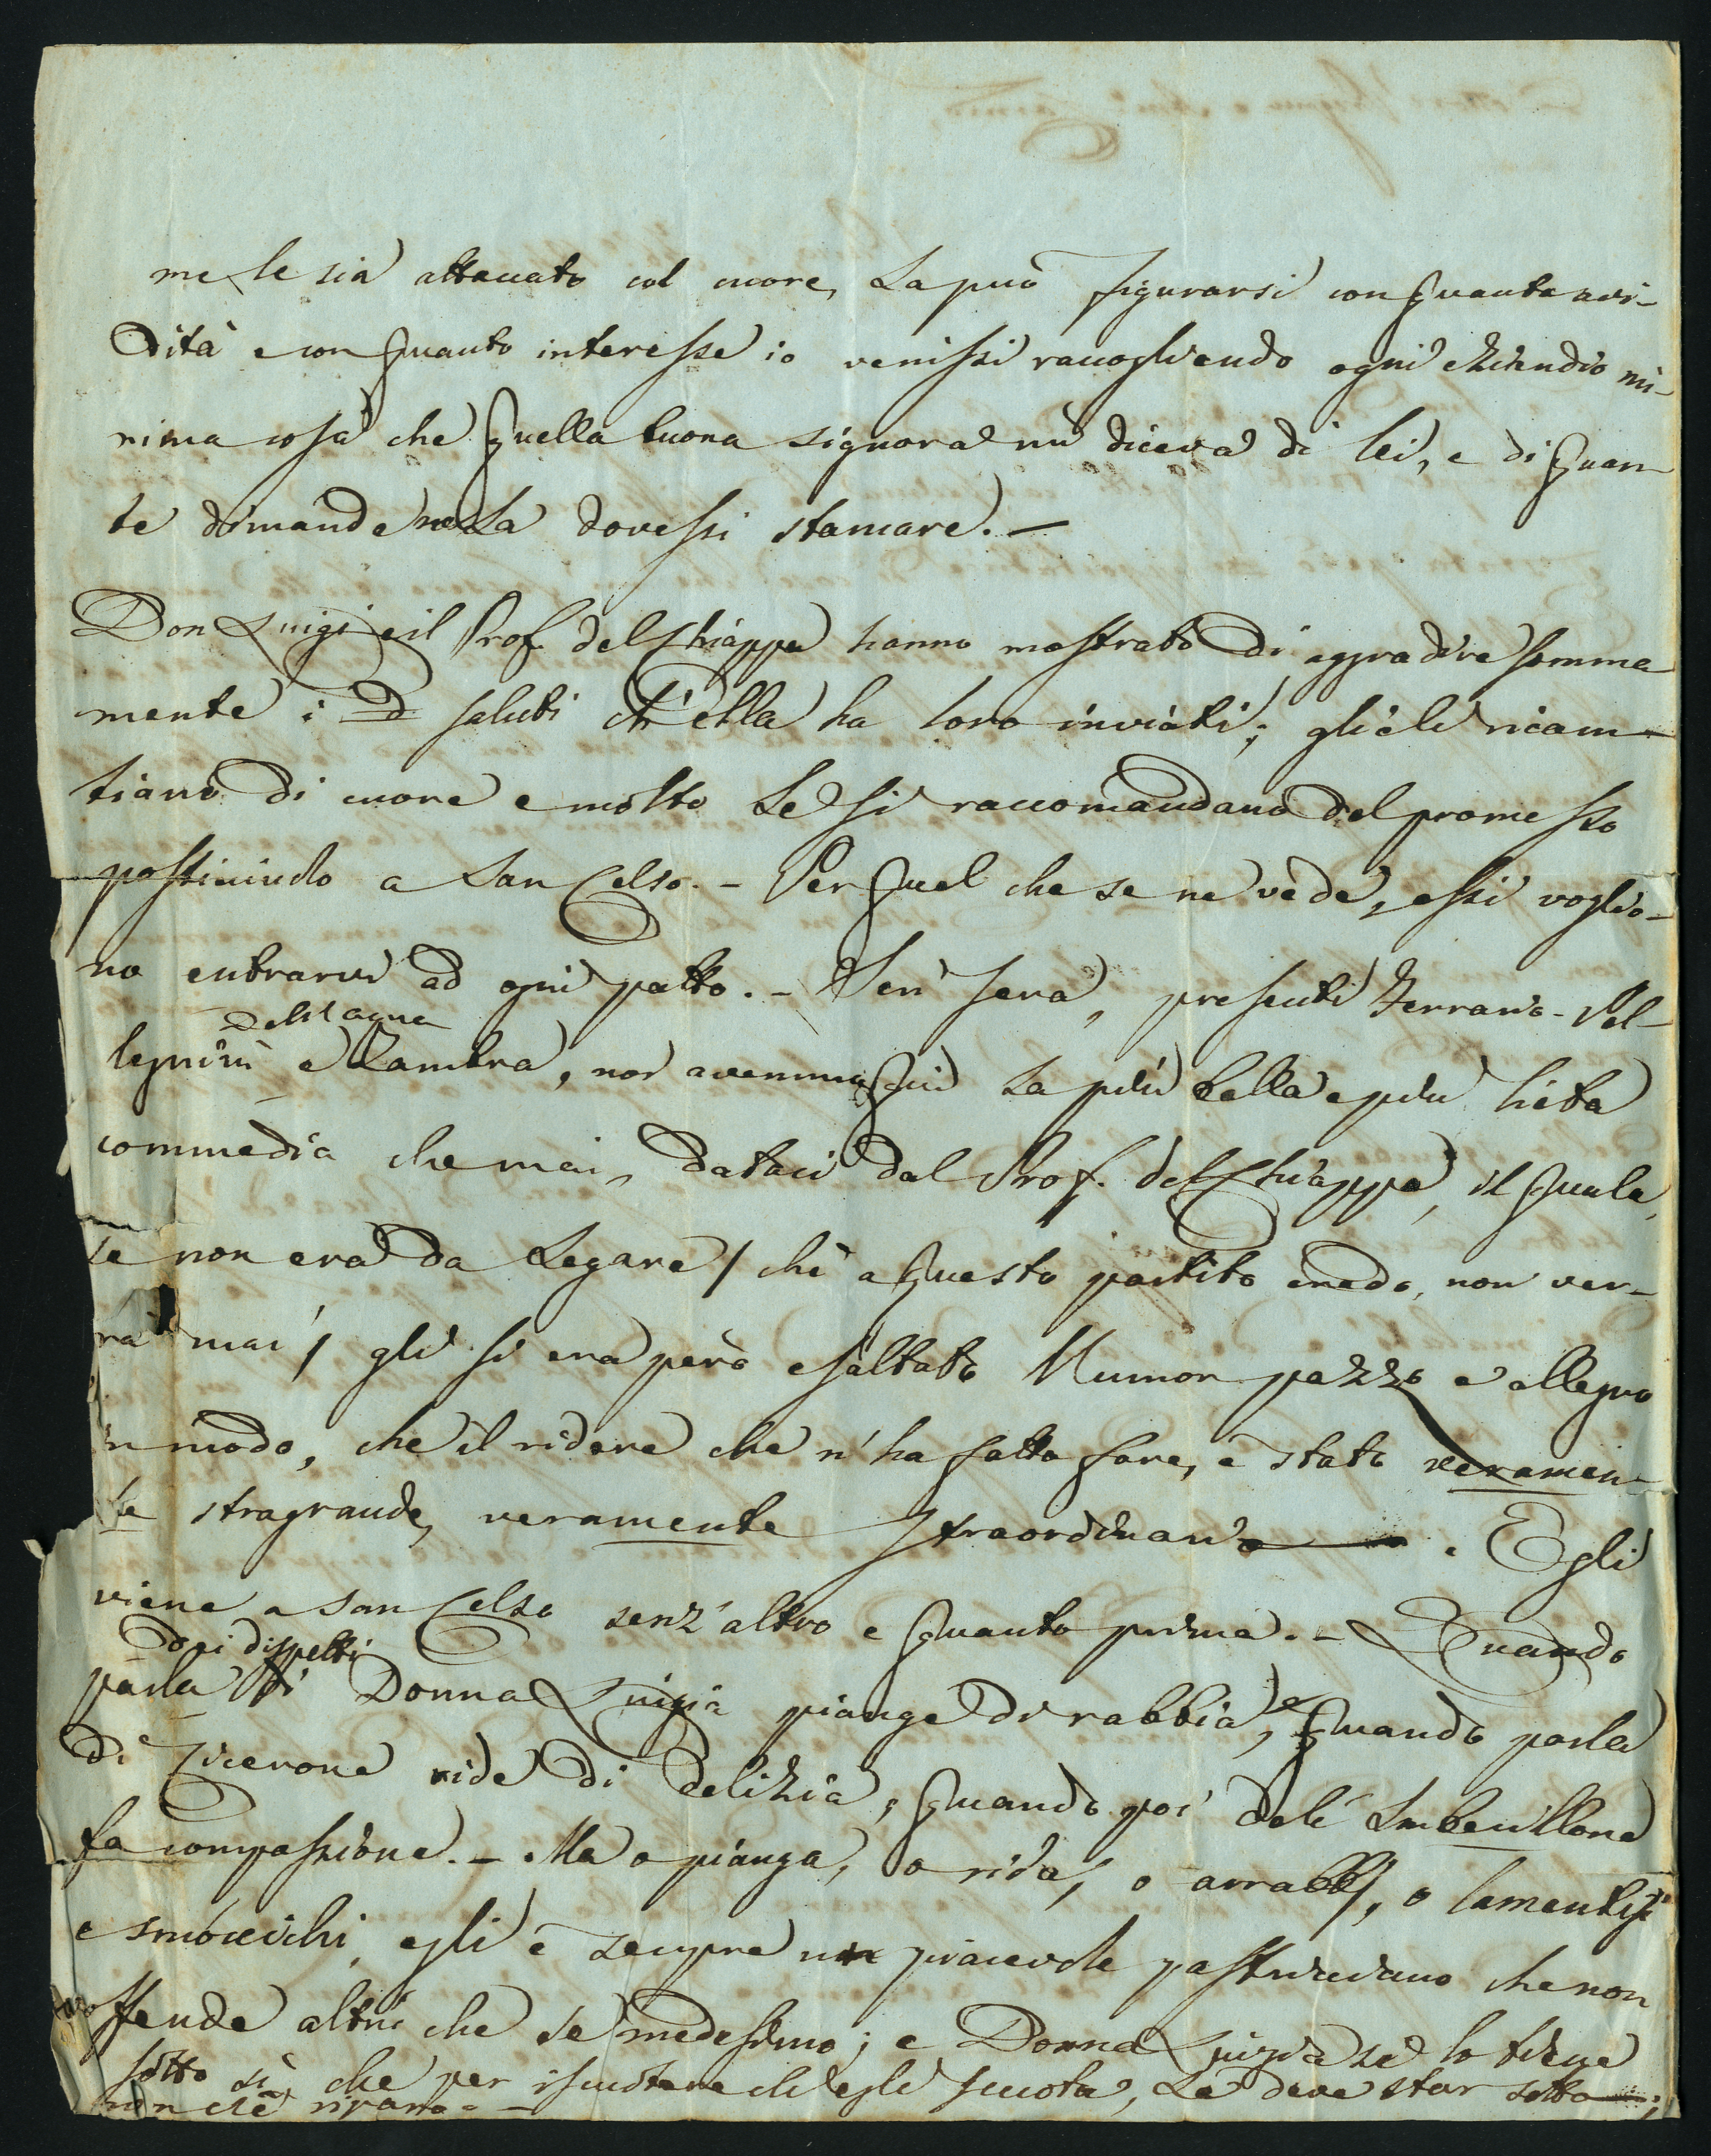 me le sia attaccato col cuore, La può figurarsi con quanta avi-
dità e con quanto interesse io venissi raccogliendo ogni mi-
nima cosa che quella buona signora mi diceva di lei, e di quan-
te domande La dovessi stancare. —
Don Luigi e il Prof. del Chiappa hanno mostrato di aggradire somma
mente i saluti ch'ella ha loro inviati; glieli ricam-
biano di cuore e molto Le si raccomandano del promesso
posticciuolo a San Celso. - Per quel che se ne vede, essi voglio-
no entrarvi ad ogni patto. - Jeri sera, presenti Ferrario - Pel-
Dell'Acqua
legrini e Zambra, noi avemmo qui la più bella e più lieta
commedia che mai, dataci dal Prof. del Chiappa, il quale,
se non era da legare / chè a questo partito credo, non ver-
rà mai / gli si era però esaltato l'umor pazzo e allegro
in modo, che il ridere che n'ha fatto fare, è stato veramen-
te stragrande, veramente straordinario — . Egli
viene a San Celso senz'altro e quanto prima. - Quando
dei dispetti
parla di Donna Luigia piange di rabbia, e quando parla
di Cicerone ride di delizia, quando poi dell' Imbecillone
fa compassione. - Ma o pianga, o rida, o arrabbj, o lamentisi
e smoccichi, egli è sempre un piacevole pastricciano che non
offende altri che se medesimo; e Donna Luigia se lo tiene
sotto sì che per iscuotere ch'egli scuota, Le deve star sotto —;
non c'è riparo. —